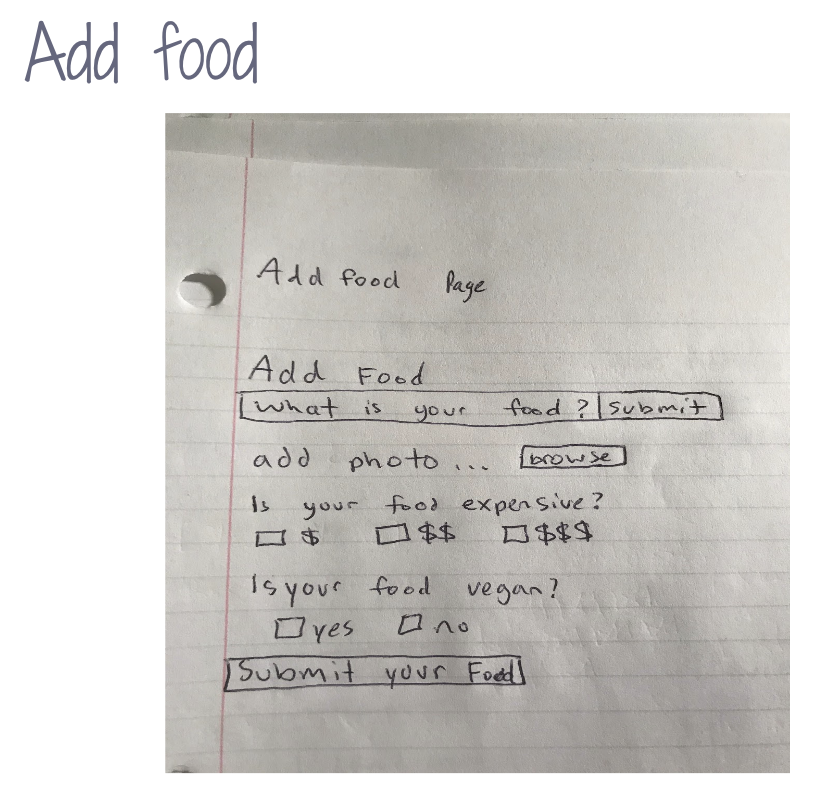 Add food
Add food Page
Add Food
What is your food? Submit
add photo... browse
Is your food expensive?
$ $$ $$$
Is your food vegan?
yes no
Submit your Food